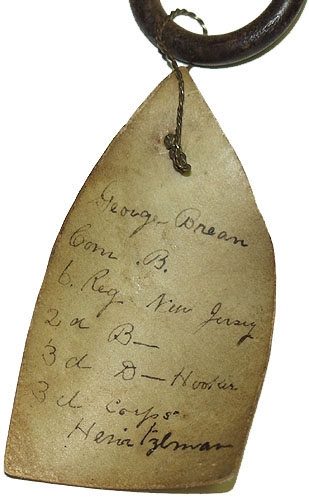 George Brean
Com. B.
6. Reg. New Jersey
2d B—
3d D— Hooker
3d Corps
Heintzlman